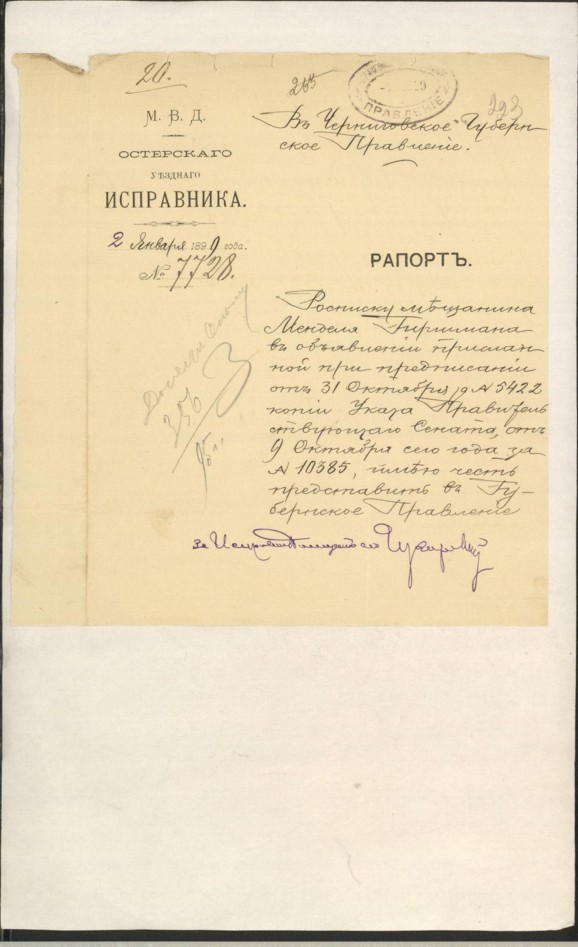 20.
265
ПРАВЛЕНІЕ
223
М. В. Д.
ОСТЕРСКАГО
УѢЗДНАГО
ИСПРАВНИКА.
2 Января 1899 года.
№ 7728.
Въ Черниговское Губерн-
ское Правленіе.
РАПОРТЪ.
Росписку мѣщанина
Менделя Гиршмана
въ объявленіи прислан
ной при предписаніи
отъ 31 Октября № 5422
копіи Указа Правитель
ствующаго Сената, отъ
9 Октября сего года за
№ 10385, имѣю честь
представить въ Гу-
бернское Правленіе
356
За Исправника